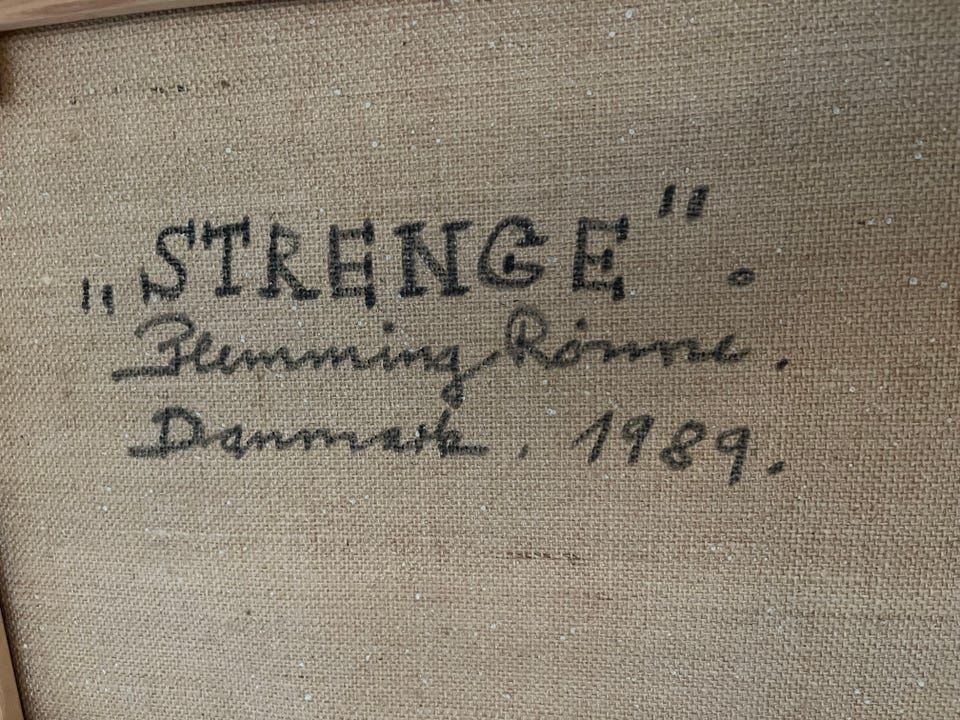 „STRENGE".
Flemming Rönne.
Danmark. 1989.